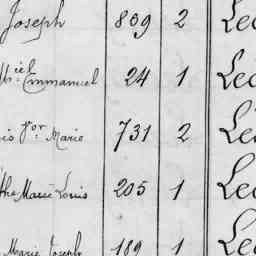 Joseph 809 2 Le
Emmanuel 24 1 Le
is Vor Marie 731 2 Le
the Marie Louis 205 1 Le
Marie Joseph 189 1 Le